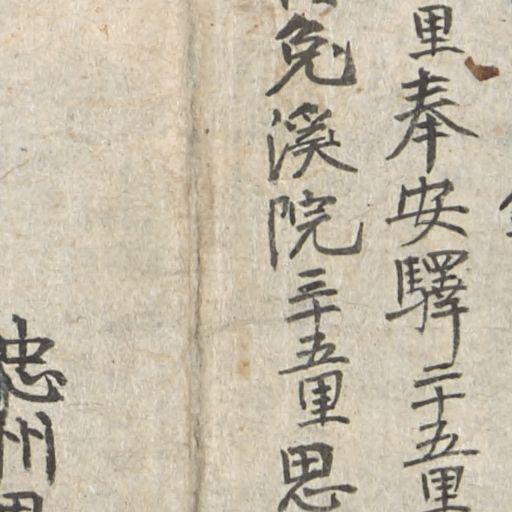 里奉安驛二十五里
兔溪院三十五里思
忠州